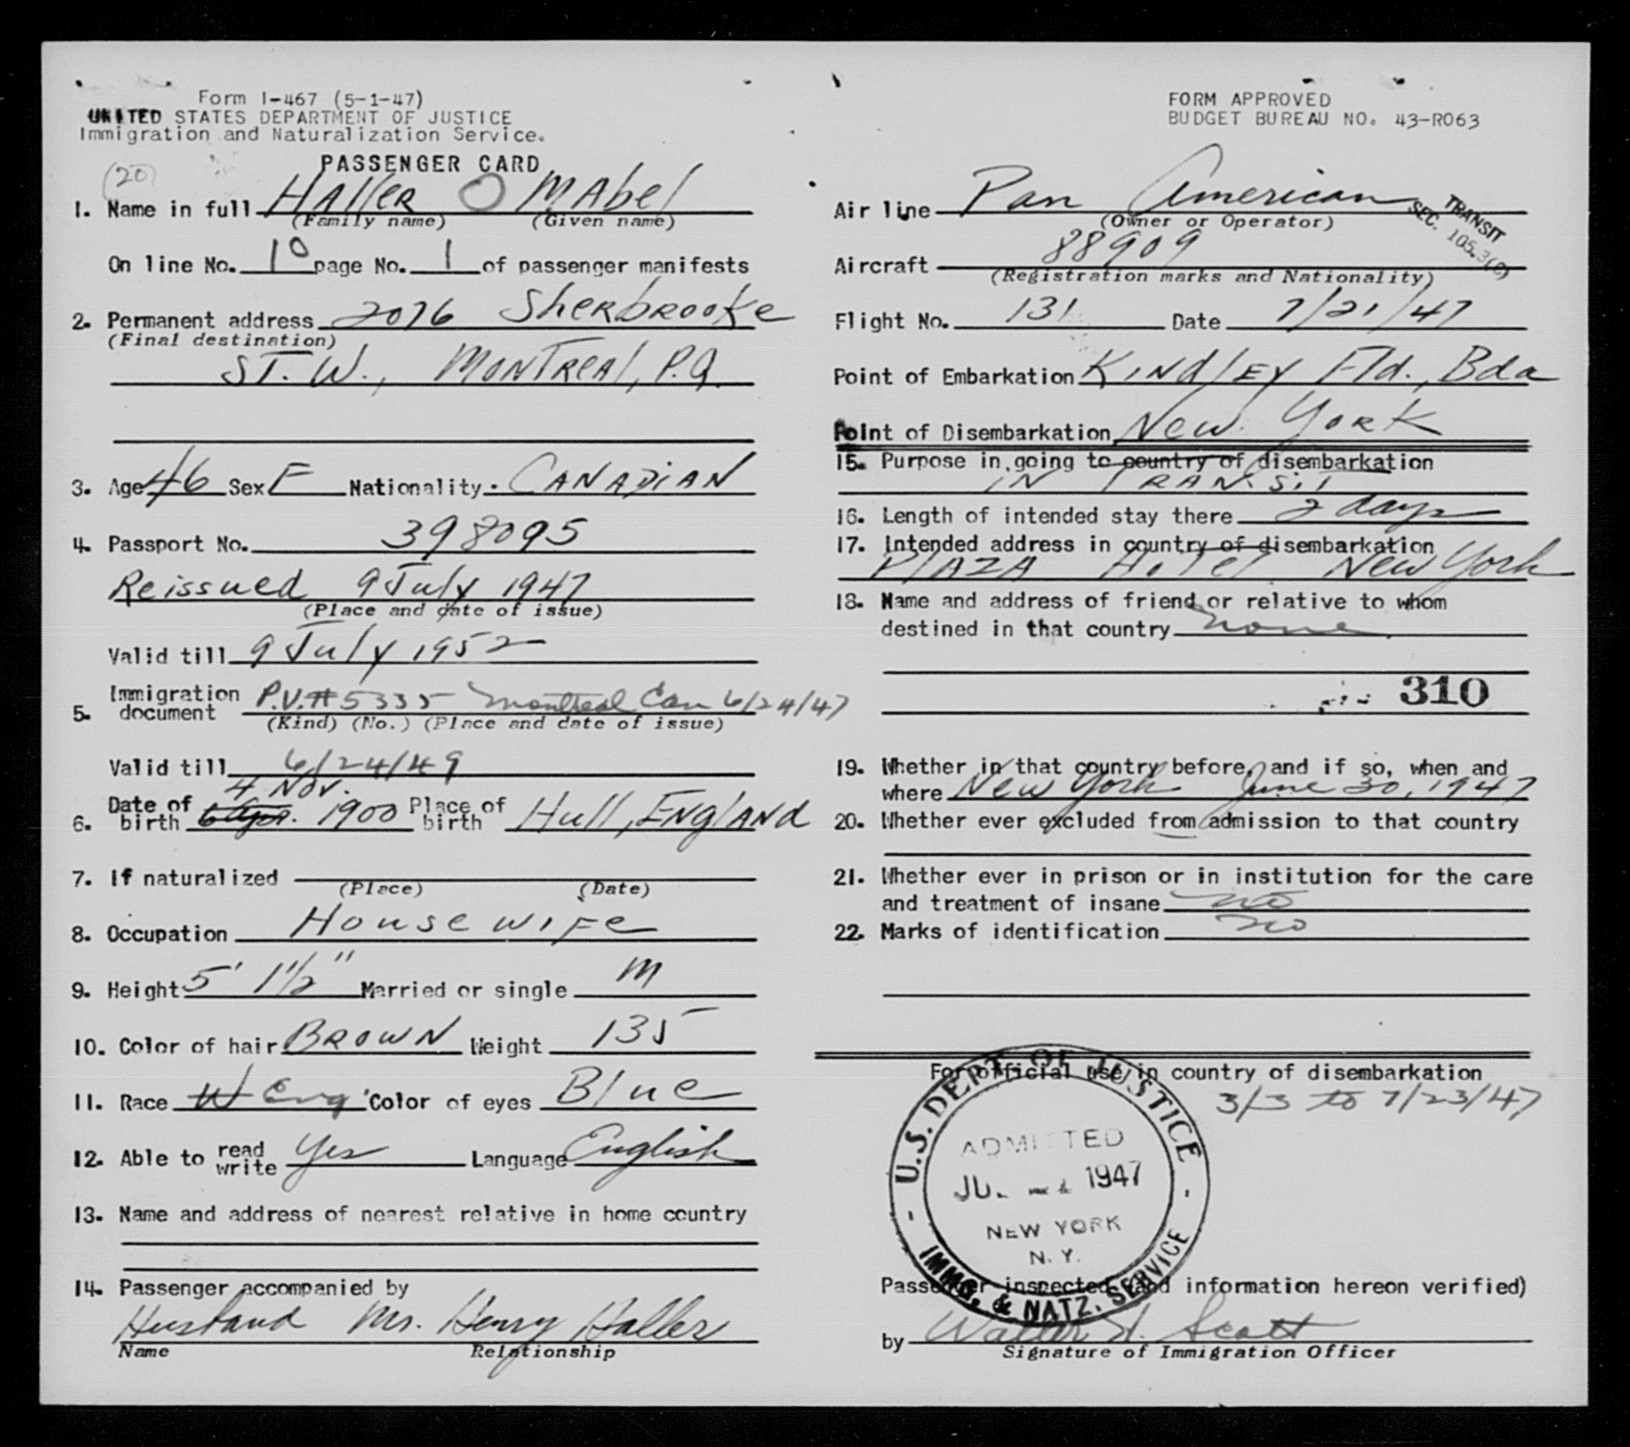 Form I-467 (5-1-47)
UNITED STATES DEPARTMENT OF JUSTICE
Immigration and Naturalization Service.
(20) PASSENGER CARD
1. Name in full Haller Mabel
(Family name) (Given name)
On line No. 10 page No. 1 of passenger manifests
2. Permanent address 2076 Sherbrooke
(Final destination)
ST. W., Montreal, P.Q.
3. Age 46 Sex F Nationality. CANADIAN
4. Passport No. 398095
Reissued 9 July 1947
(Place and date of issue)
Valid till 9 July 1952
5. Immigration document P.V.#5335 Montreal Can 6/24/47
(Kind) (No.) (Place and date of issue)
Valid till 6/24/49
4 Nov.
6. Date of birth 6 Apr. 1900 Place of birth Hull, England
7. If naturalized
(Place) (Date)
8. Occupation Housewife
9. Height 5' 1½" Married or single M
10. Color of hair BROWN Weight 135
11. Race W Eng Color of eyes Blue
12. Able to read write Yes Language English
13. Name and address of nearest relative in home country
14. Passenger accompanied by
Husband Mr. Henry Haller
Name Relationship
FORM APPROVED
BUDGET BUREAU NO. 43-R063
Air line Pan American
(Owner or Operator)
TRANSIT
SEC. 105.3(c)
Aircraft 88909
(Registration marks and Nationality)
Flight No. 131 Date 7/21/47
Point of Embarkation Kindley Fld., Bda
Point of Disembarkation New York
15. Purpose in going to country of disembarkation
IN TRANSIT
16. Length of intended stay there 2 days
17. Intended address in country of disembarkation
PLAZA Hotel New York
18. Name and address of friend or relative to whom
destined in that country none
310
19. Whether in that country before, and if so, when and
where New York June 30, 1947
20. Whether ever excluded from admission to that country
21. Whether ever in prison or in institution for the care
and treatment of insane no
22. Marks of identification no
For official use in country of disembarkation
3/3 to 7/23/47
U.S. DEPT OF JUSTICE
ADMITTED
1947
NEW YORK
N. Y.
IMMG. & NATZ. SERVICE
Passenger inspected (and information hereon verified)
by Walter H. Scott
Signature of Immigration Officer